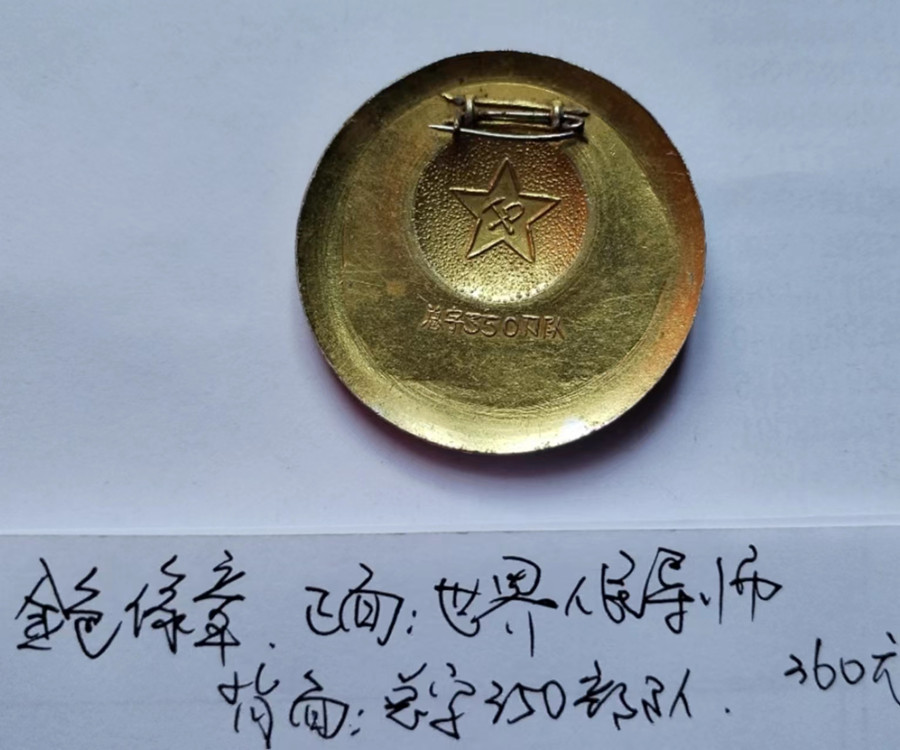 总字350部队
金色像章. 正面: 世界人民导师
背面: 总字350部队. 360元